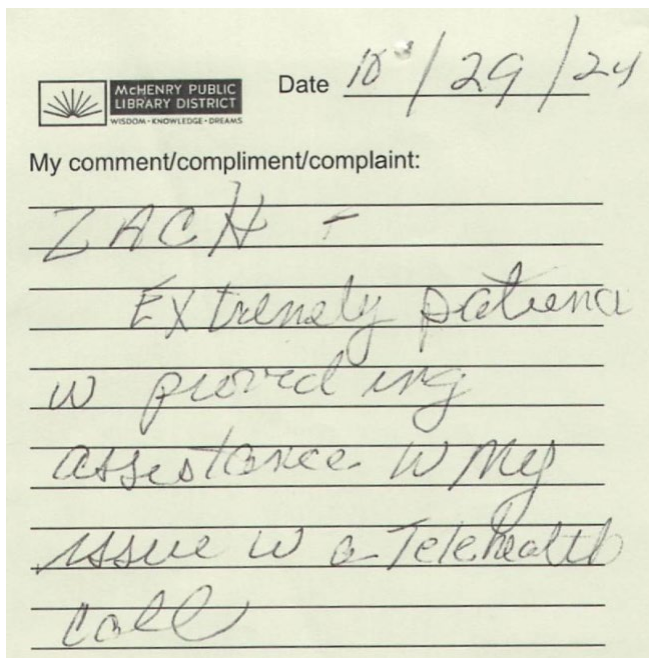 McHENRY PUBLIC
LIBRARY DISTRICT
WISDOM • KNOWLEDGE • DREAMS
Date 10/29/24
My comment/compliment/complaint:
ZACH -
Extremely patient
w providing
assistance w My
issue w a Telehealth
call